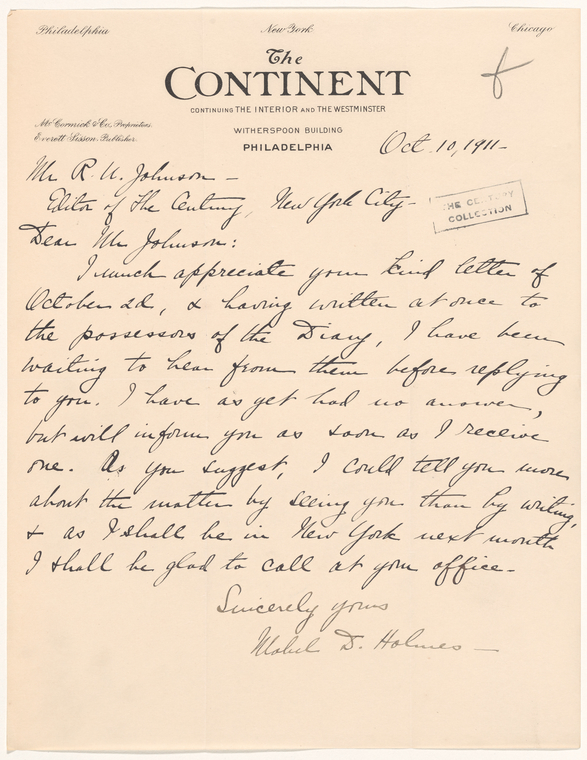 Philadelphia New York Chicago
The
CONTINENT
CONTINUING THE INTERIOR AND THE WESTMINSTER
McCormick & Co. Proprietors.
Everett Sisson. Publisher.
WITHERSPOON BUILDING
PHILADELPHIA
Oct. 10, 1911-
Mr R. U. Johnson -
Editor of The Century, New York City-
THE CENTURY
COLLECTION
Dear Mr Johnson:
I much appreciate your kind letter of
October 2d, & having written at once to
the possessors of the Diary, I have been
waiting to hear from them before replying
to you. I have as yet had no answer,
but will inform you as soon as I receive
one. As you suggest, I could tell you more
about the matter by seeing you than by writing,
& as I shall be in New York next month
I shall be glad to call at your office-
Sincerely yours
Mabel D. Holmes-